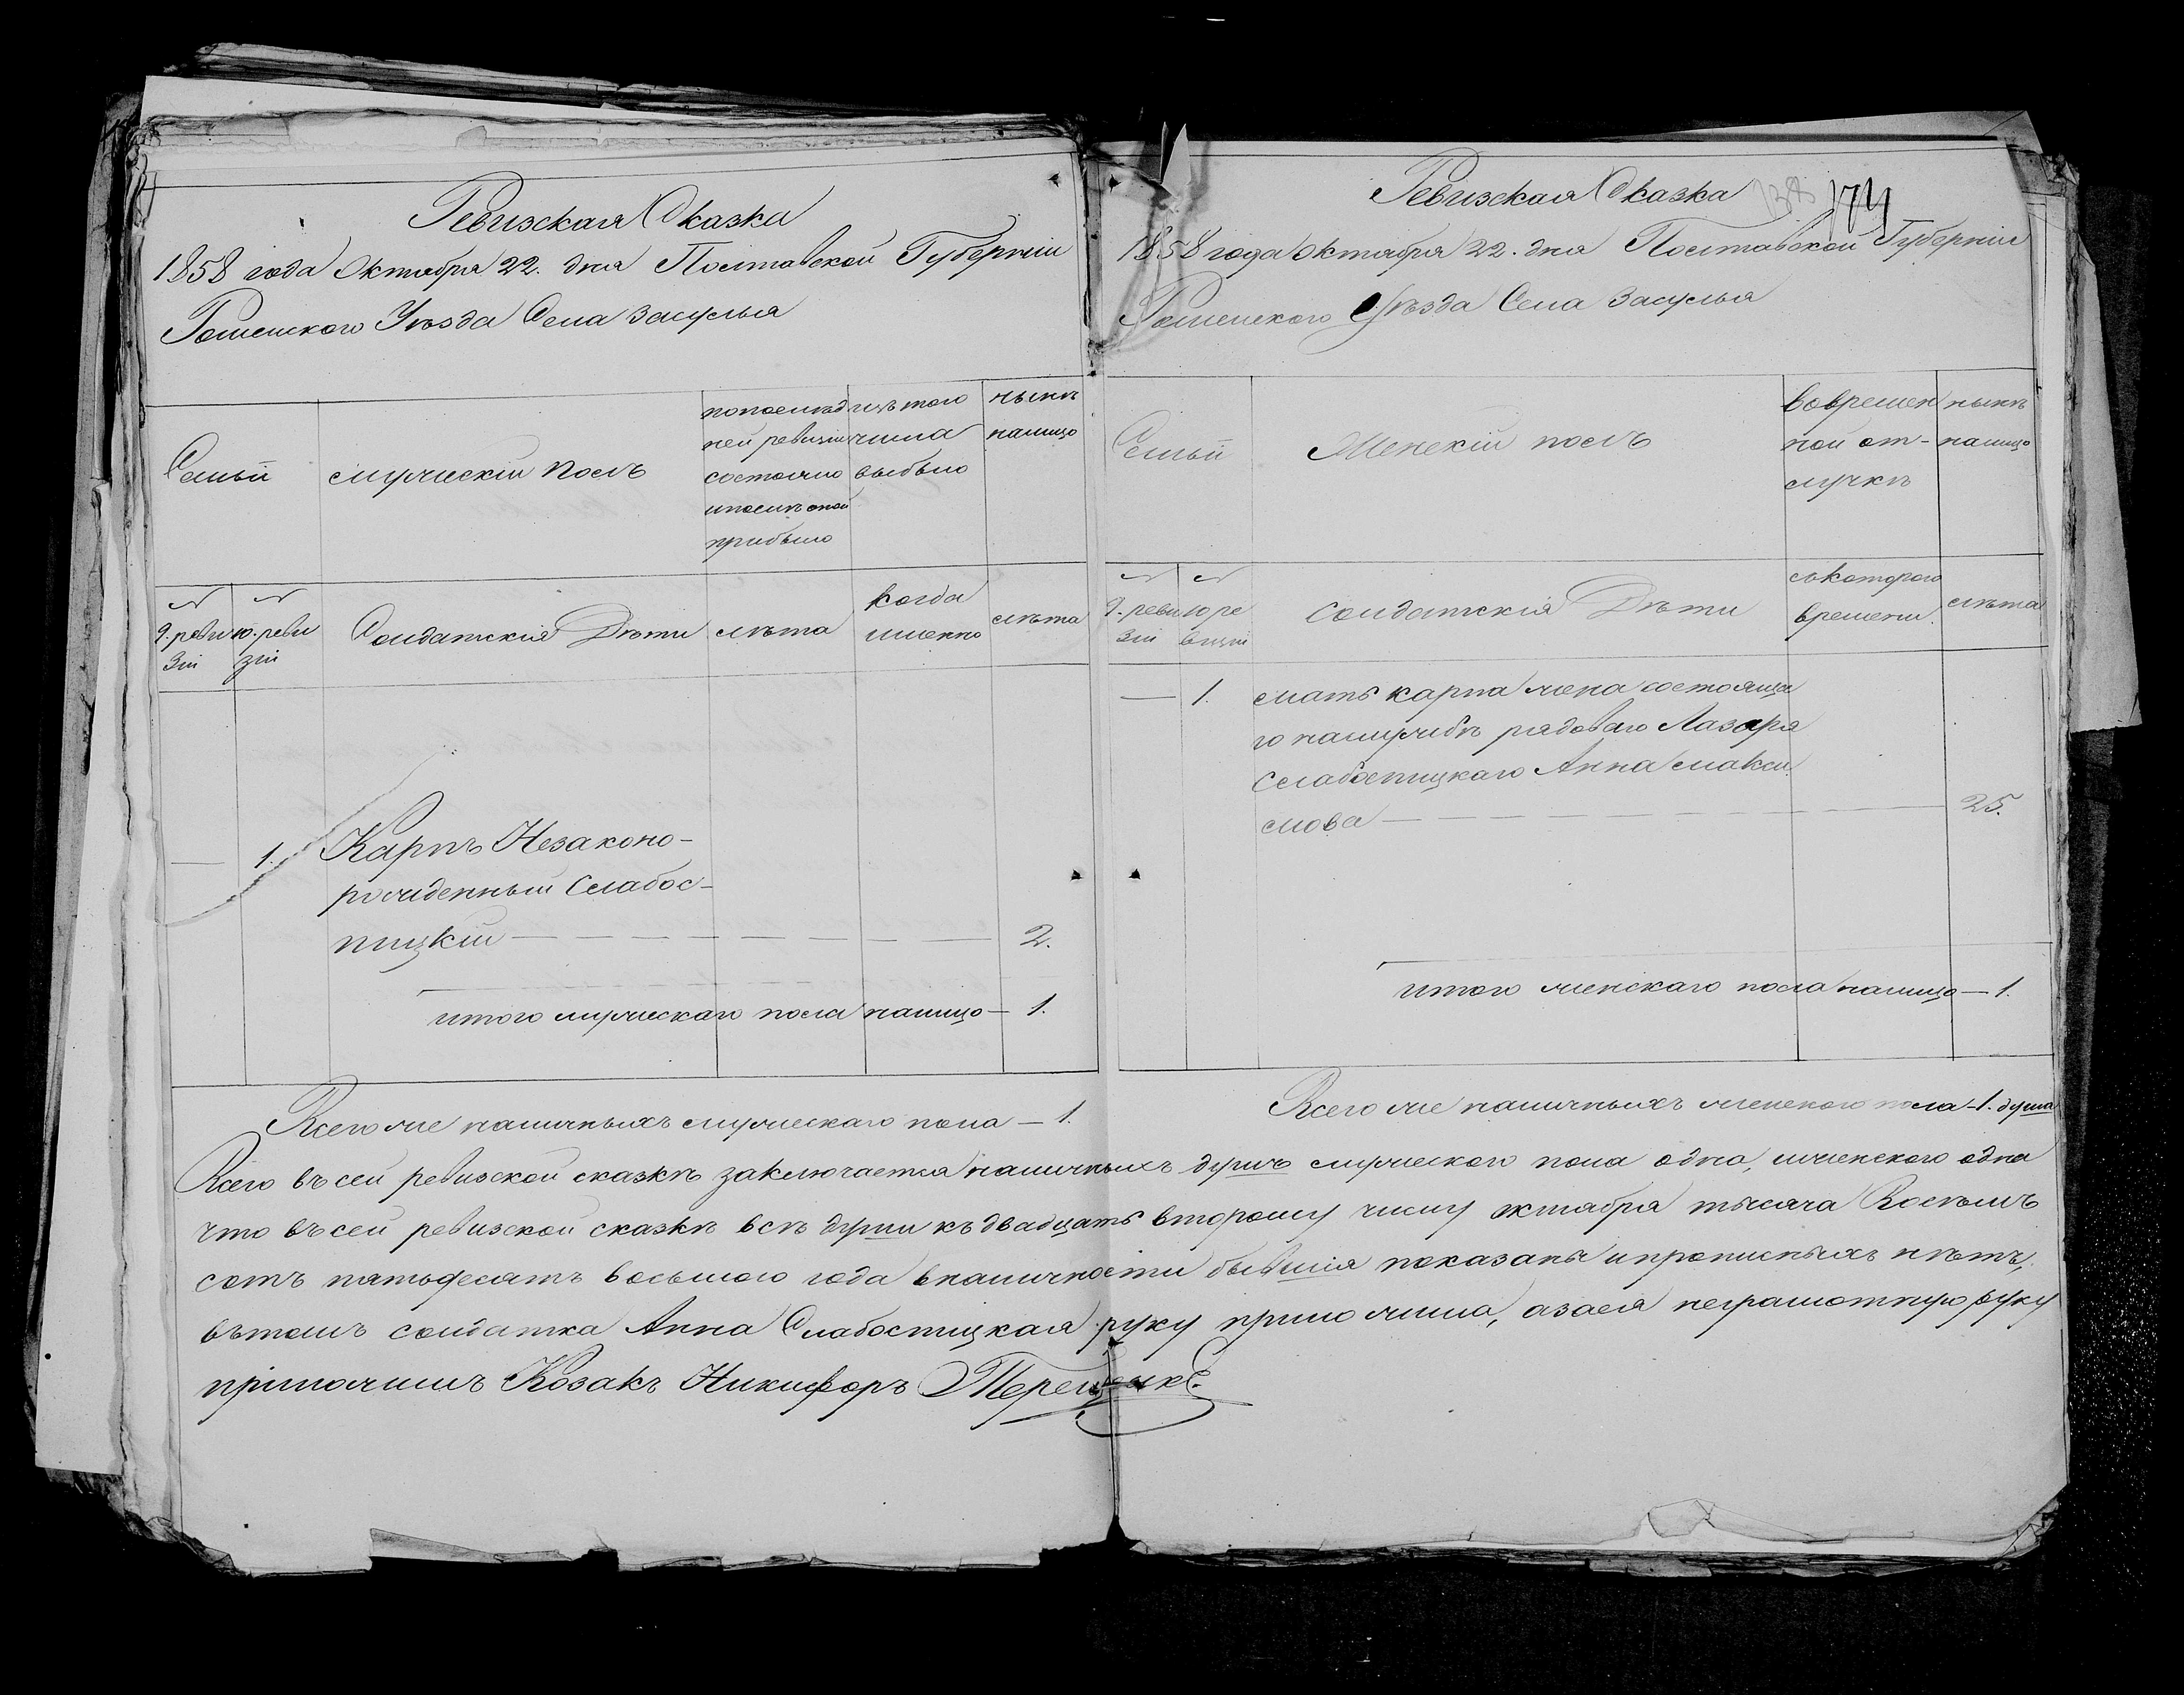 Ревизская Сказка
1858 года Октября 22. дня Полтавской Губерніи
Роменского Уѣзда Села Засулья
Семьи
мужескій полъ
попослѣд
ней ревизіи
состояло
ипослѣ оной
прибыло
изъ того
числа
выбыло
нынѣ
налицо
№
9. реви
зіи
№
10. реви
зіи
Солдатскія Дѣти
лѣта
когда
именно
лѣта
— 1. Карпъ Незаконо-
рожденный Слабос-
пицкій — — — — — — 2.
итого мужескаго пола налицо — 1.
Всего же наличныхъ мужескаго пола — 1.
Ревизская Сказка
138 174
1858 года Октября 22. дня Полтавской Губерніи
Роменского Уѣзда Села Засулья
Семьи
Женскій полъ
вовремен
ной от-
лучкѣ
нынѣ
налицо
№
9. реви
зіи
№
10 ре
визіи
солдатскія Дѣти
скоторого
времени.
лѣта
— 1. мать карпа жена состояща
го наслужбѣ рядоваго Лазаря
Слабоспицкаго Анна макси
мова — — — — — — 25.
итого женскаго пола налицо — 1.
Всего же наличныхъ женскаго пола — 1. душа
Всего въ сей ревизской сказкѣ заключается наличныхъ душъ мужеского пола одна, женского одна
что въ сей ревизской сказкѣ всѣ души къ двадцать второму числу октября тысяча Восѣмъ
сотъ пятьдесятъ восьмого года вналичности бывшія показаны ипрописныхъ нѣтъ,
вътомъ солдатка Анна Слабоспицкая руку приложила, азаея неграмотную руку
приложилъ Козакъ Никифоръ Терещенко.